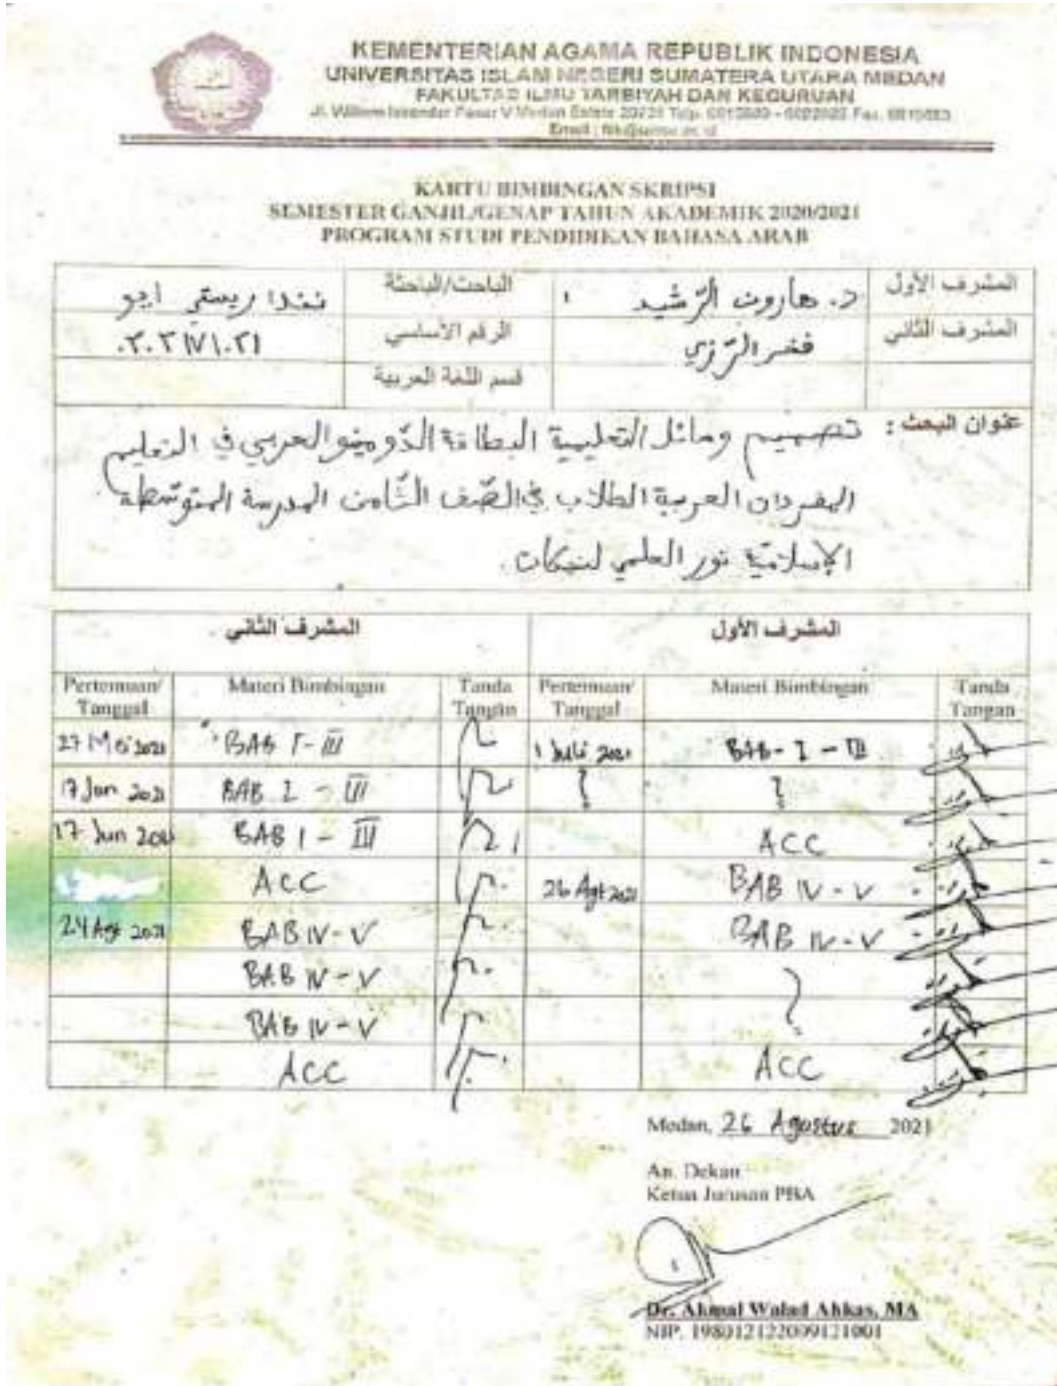 KEMENTERIAN AGAMA REPUBLIK INDONESIA
UNIVERSITAS ISLAM NEGERI SUMATERA UTARA MEDAN
FAKULTAS ILMU TARBIYAH DAN KEGURUAN
Jl. Willem Iskandar Pasar V Medan Estate
Email :
KARTU BIMBINGAN SKRIPSI
SEMESTER GANJIL/GENAP TAHUN AKADEMIK 2020/2021
PROGRAM STUDI PENDIDIKAN BAHASA ARAB
المشرف الأول د. هارون الرّشيد الباحث/الباحثة نندا ريسقي ايو
المشرف الثاني فخر الرّزي الرقم الأساسي ٠٣٠٢١٧١٠٢١
قسم اللغة العربية
عنوان البحث : تصميم وسائل التعليمية البطاقة الدّومينو العربي في التعليم
المفردان العربية الطلاب في الصّف الثّامن المدرسة المتوسّطة
الإسلاميّة نور العلمي لنبكات.
المشرف الثاني المشرف الأول
Pertemuan/ Materi Bimbingan Tanda Pertemuan/ Materi Bimbingan Tanda
Tanggal Tangan Tanggal Tangan
27 Mei 2021 BAB I - III 1 Juli 2021 BAB - I - III
17 Jun 2021 BAB I - III
17 Jun 2021 BAB I - III ACC
ACC 26 Agt 2021 BAB IV - V
24 Agt 2021 BAB IV - V BAB IV - V
BAB IV - V
BAB IV - V
ACC ACC
Medan, 26 Agustus 2021
An. Dekan
Ketua Jurusan PBA
Dr. Akmal Walad Ahkas, MA
NIP. 198012122009121001